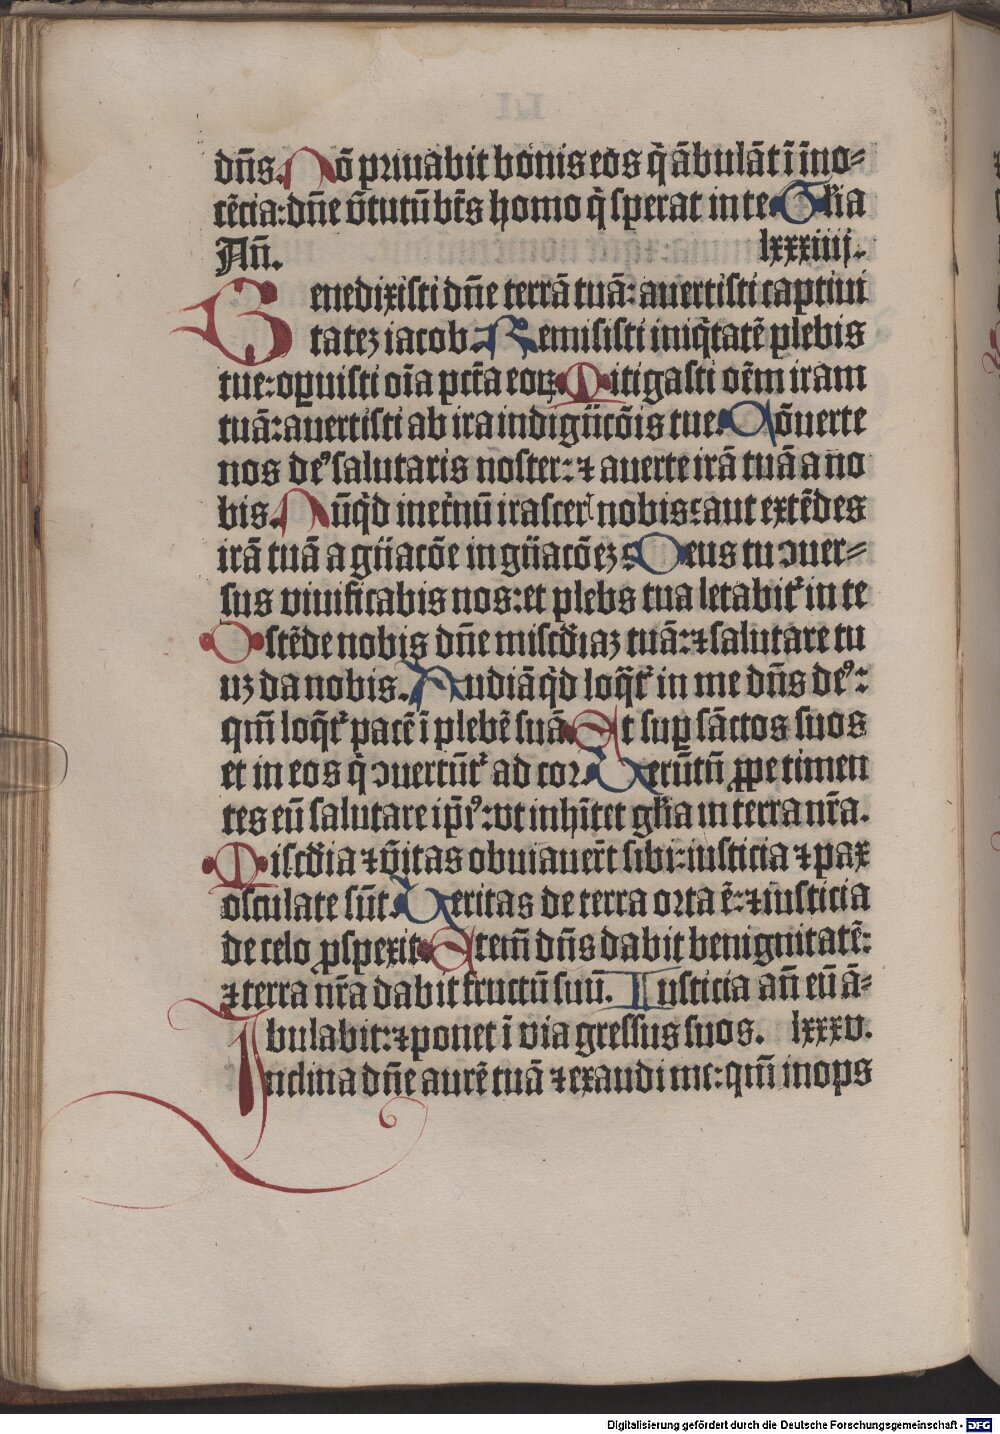 dn̄s. Nō priuabit bonis eos q̄ ābulāt ī īno⸗
cēcia: dn̄e v̄tutū bt̄s homo q̇ sperat in te. Gl̄ia
An̄. lxxxiiij.
Benedixisti dn̄e terrā tuā: auertisti captiui
tatez iacob. Remisisti iniq̄tatē plebis
tue: oꝑuisti oīa pctā̄ eoꝝ. Mitigasti oēm iram
tuā: auertisti ab ira indign̄cōis tue. Cōuerte
nos deꝰ salutaris noster: ⁊ auerte irā tuā a no
bis. Nūq̇d inet̄nū irascer̄ nobis: aut extēdes
irā tuā a gn̄acōe in gn̄acōez Deus tu ↄuer⸗
sus viuificabis nos: et plebs tua letabit᷑ in te
Ostēde nobis dn̄e misc̄diaz tuā: ⁊ salutare tu
uz da nobis. Audiā q̇d loq̄t᷑ in me dn̄s deꝰ:
qm̄ loq̄t᷑ pacē ī plebē suā. Et suꝑ sāctos suos
et in eos q̇ ↄuertūt᷑ ad cor. Uerūtn̄ ꝓpe timen
tes eū salutare ip̄iꝰ: vt inhītet gl̄ia in terra nr̄a.
Misc̄dia ⁊ v̄itas obuiauer̄t sibi: iusticia ⁊ pax
osculate sūt. Ueritas de terra orta ē: ⁊ iusticia
de celo ꝓspexit. Etem̄ dn̄s dabit benignitatē:
⁊ terra nr̄a dabit fructū suū. Iusticia an̄ eū ā⸗
bulabit: ⁊ ponet ī via gressus suos. lxxxv.
Inclina dn̄e aurē tuā ⁊ exaudi me: qm̄ inops
Digitalisierung gefördert durch die Deutsche Forschungsgemeinschaft - DFG